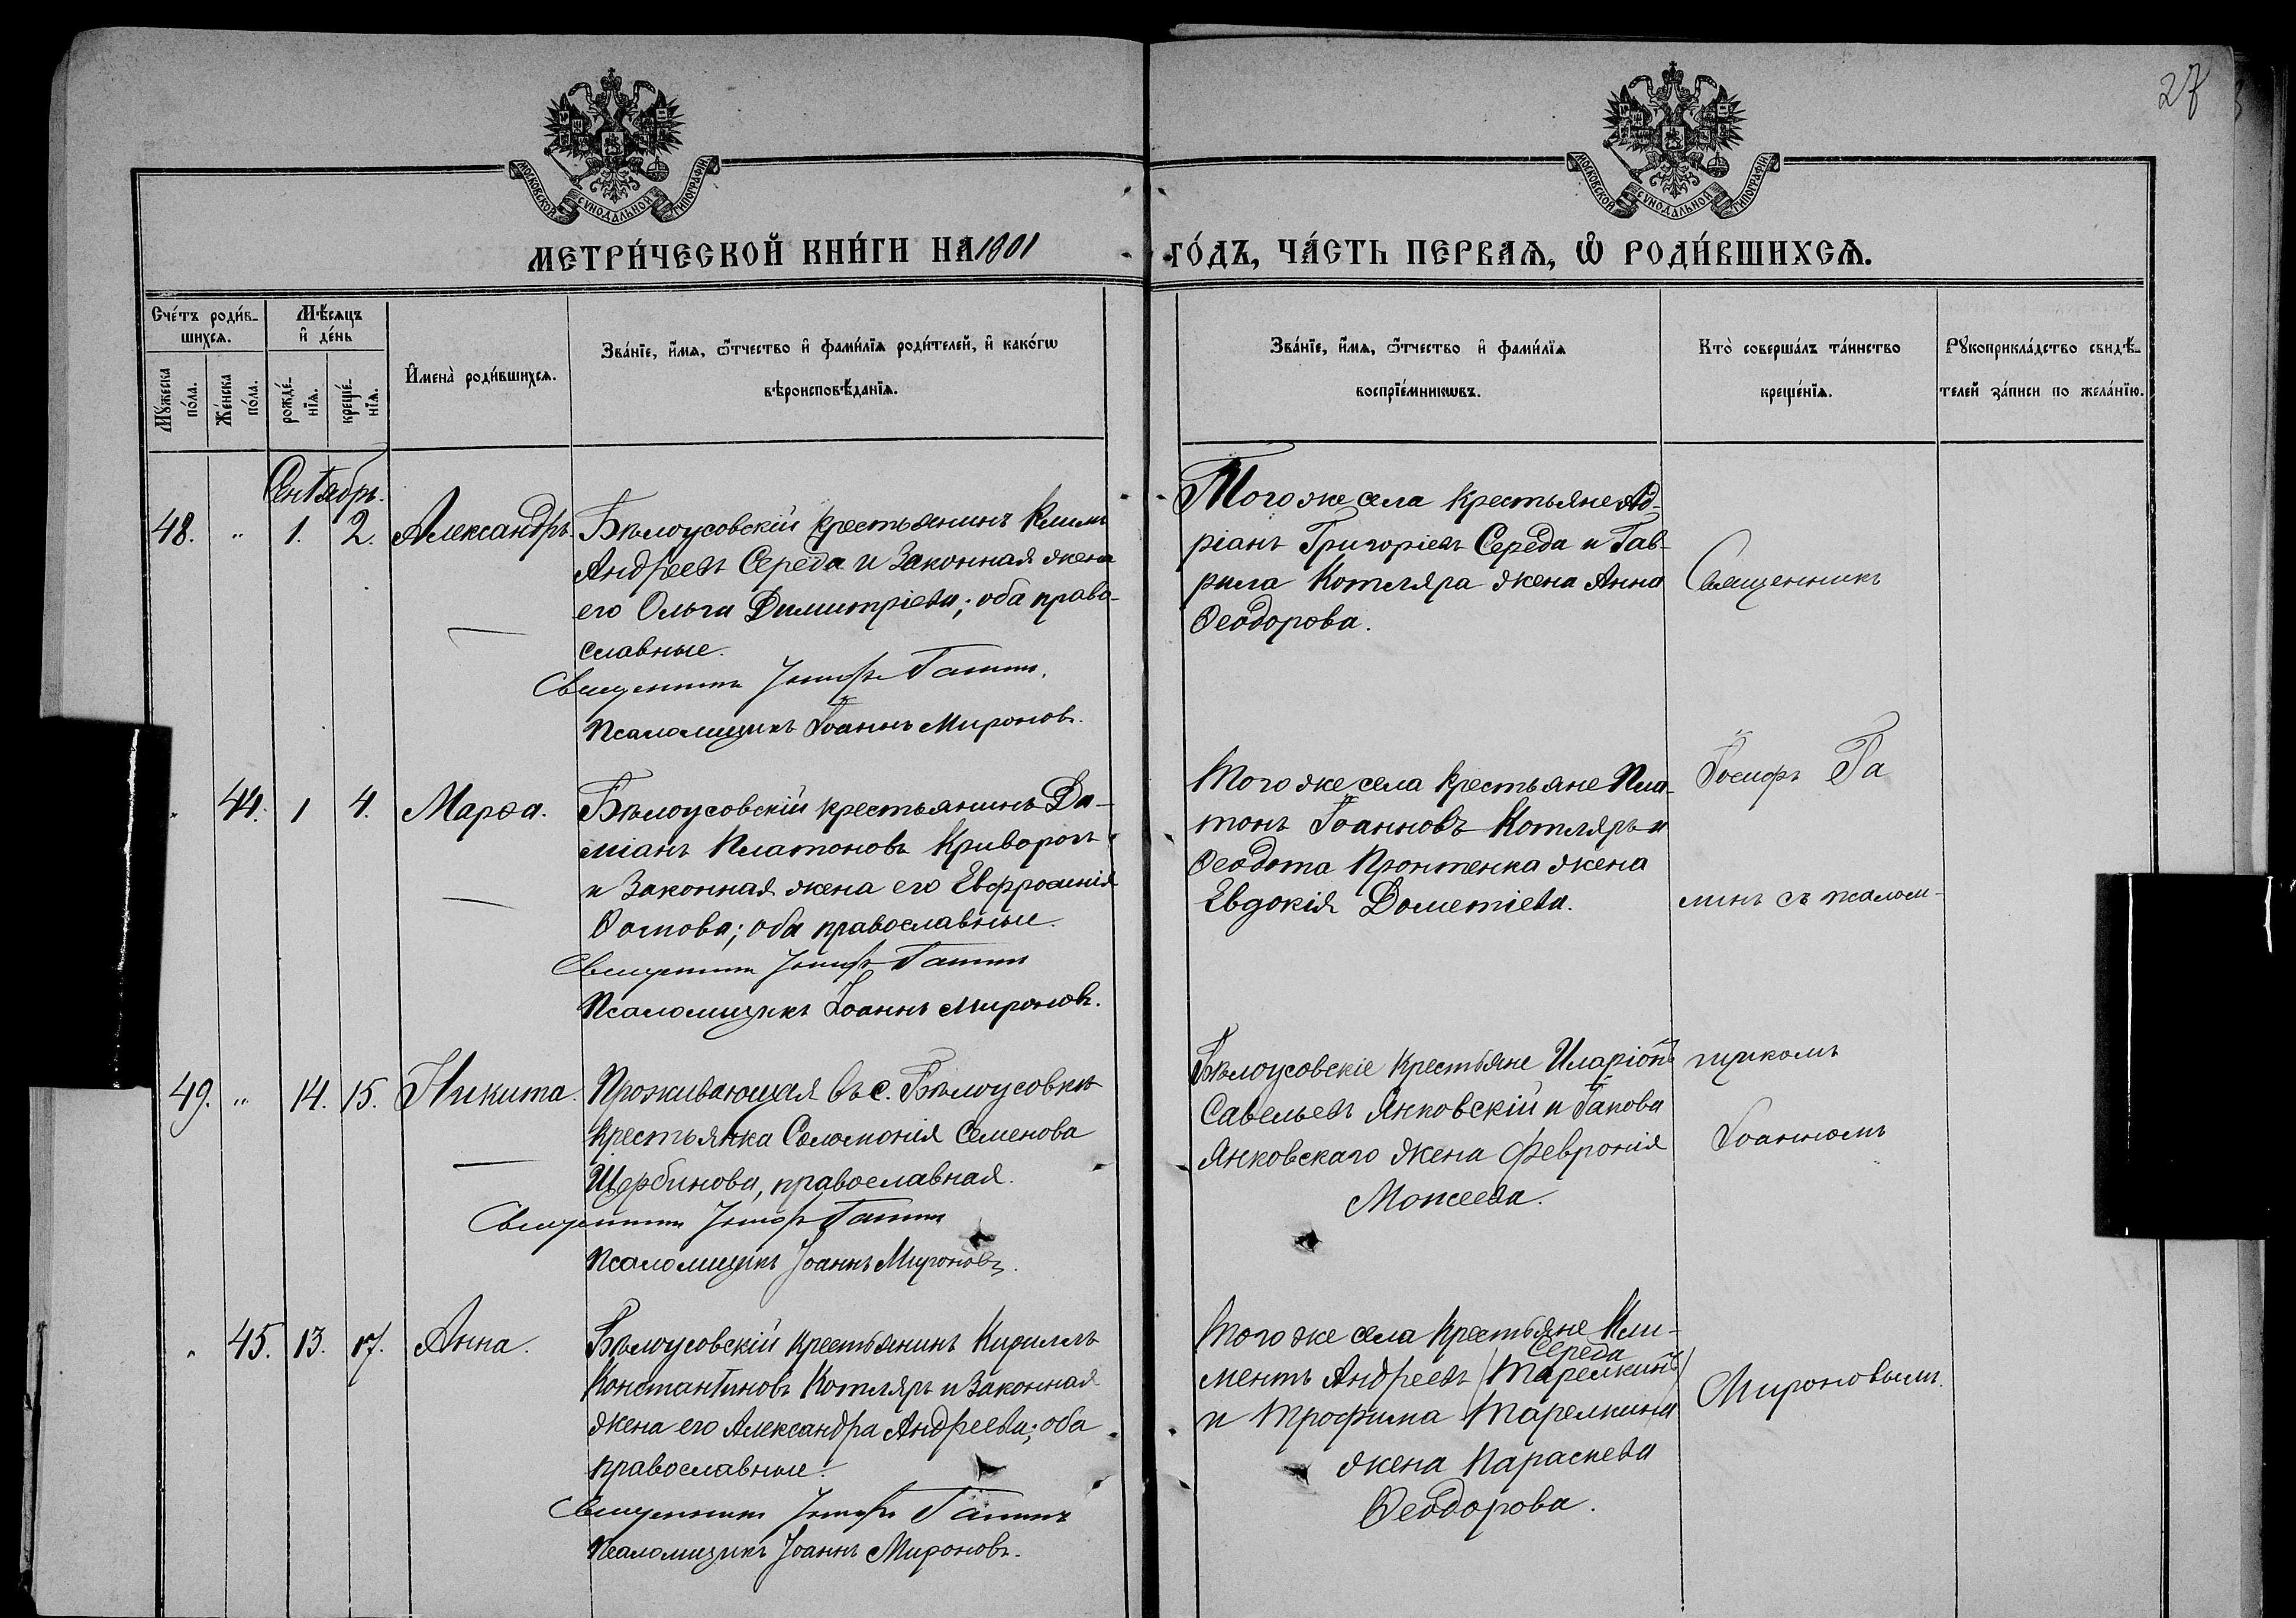 27
МОСКОВСКОЙ СѴНОДАЛЬНОЙ ТИПОГРАФІИ
МОСКОВСКОЙ СѴНОДАЛЬНОЙ ТИПОГРАФІИ
МЕТРИ́ЧЕСКОЙ КНИ́ГИ НА 1901
ГО́ДЪ, ЧА́СТЬ ПЕРВАѦ, Ѡ҆ РОДИ́ВШИХСѦ.
Сче́тъ роди́в-
шихсѧ.
Мꙋ́жеска по́ла.
Же́нска по́ла.
Мѣ́сѧцъ
и҆ де́нь
рожде́-
нїѧ.
креще́-
нїѧ.
И҆мена̀ роди́вшихсѧ.
Зва́нїе, и҆́мѧ, ѻ҆́тчество и҆ фами́лїѧ роди́телей, и҆ како́гѡ
вѣроисповѣ́данїѧ.
Зва́нїе, и҆́мѧ, ѻ҆́тчество и҆ фами́лїѧ
воспрїе́мникѡвъ.
Кто̀ соверша́лъ та́инство
креще́нїѧ.
Рꙋкоприкла́дство свидѣ́-
телей за́писи по жела́нїю.
Сентябрь.
48. " 1. 2. Александръ.
Бѣлоусовскій крестьянинъ Климъ
Андреевъ Середа и законная жена
его Ольга Димитріева; оба право-
славные.
Священникъ Іосифъ Гаминъ.
Псаломщикъ Іоаннъ Мироновъ.
Того же села крестьяне Ад-
ріанъ Григоріевъ Середа и Гав-
рила Котляра жена Анна
Ѳеодорова.
Священникъ
" 44. 1 4. Марѳа.
Бѣлоусовскій крестьянинъ Да-
міанъ Платоновъ Криворогъ
и законная жена его Евфросинія
Ѳомова; оба православные.
Священникъ Іосифъ Гаминъ
Псаломщикъ Іоаннъ Мироновъ.
Того же села крестьяне Пла-
тонъ Іоанновъ Котляръ и
Ѳеодота Пронтенка жена
Евдокія Дометіева.
Іосифъ Га
минъ съ псалом-
49. " 14. 15. Никита.
Проживающая въ с. Бѣлоусовкѣ
крестьянка Соломонія Семенова
Щербинова, православная.
Священникъ Іосифъ Гаминъ
Псаломщикъ Іоаннъ Мироновъ.
Бѣлоусовскіе крестьяне Иларіонъ
Савельевъ Янковскій и Іакова
Янковскаго жена Февронія
Моисеева.
щикомъ
Іоанномъ
" 45. 13. 17. Анна.
Бѣлоусовскій крестьянинъ Кириллъ
Константиновъ Котляръ и законная
жена его Александра Андреева; оба
православные.
Священникъ Іосифъ Гаминъ
Псаломщикъ Іоаннъ Мироновъ.
Того же села крестьяне Кли-
Середа
ментъ Андреевъ (Тарелкинъ)
и Трофима Тарелкина
жена Параскева
Ѳеодорова.
Мироновымъ.